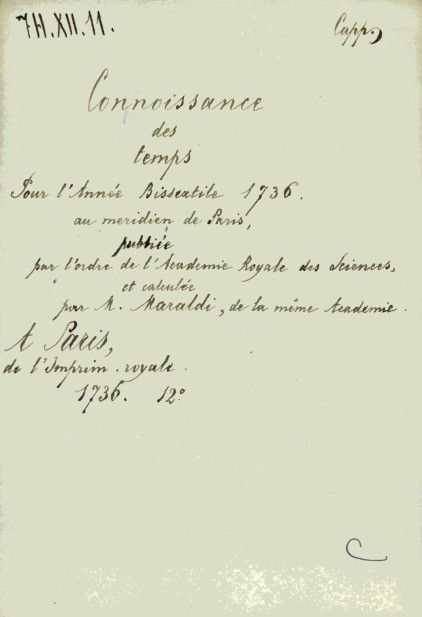 7H.XII.11.
Capp.
Connoissance
des
temps
Pour l'Année Bissextile 1736.
au meridien de Paris,
publiée
par l'ordre de l'Academie Royale des Sciences,
et calculée
par M. Maraldi, de la même Academie.
A Paris,
de l'Imprim. royale.
1736. 12°
C